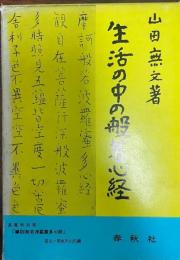 山田無文著
生活の中の般若心経
摩訶般若波羅蜜多心経
観自在菩薩行深般若波羅蜜
多時照見五蘊皆空度一切苦
舎利子色不異空空不異色
「摩訶般若波羅蜜多心経」
春秋社